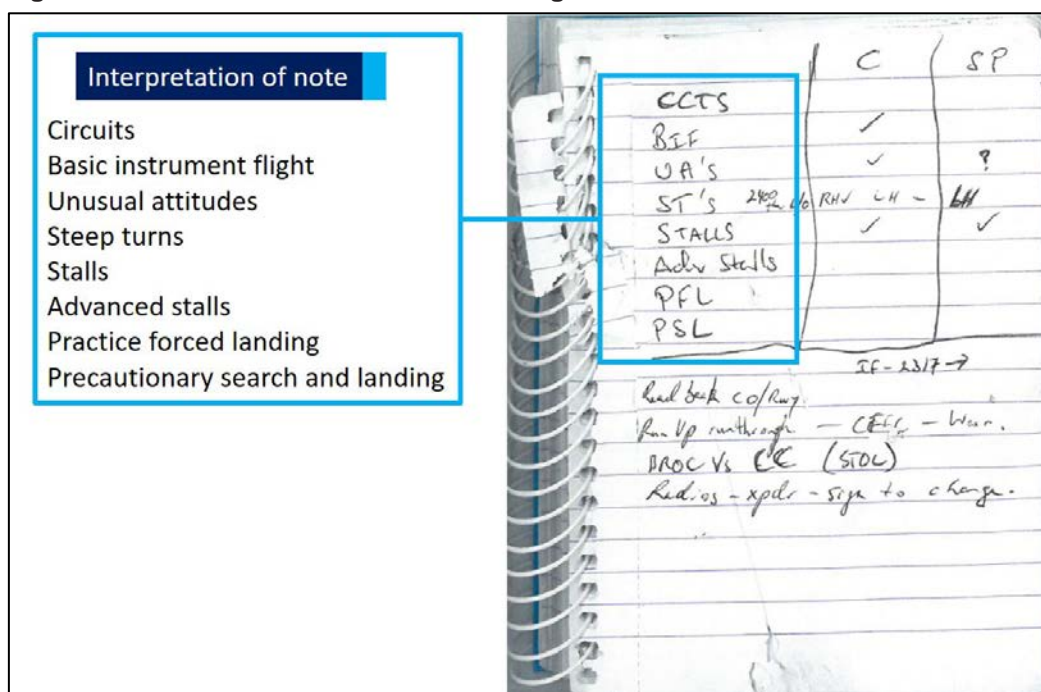 Interpretation of note
Circuits
Basic instrument flight
Unusual attitudes
Steep turns
Stalls
Advanced stalls
Practice forced landing
Precautionary search and landing
C SP
CCTS
BIF ✓
UA'S ✓ ?
ST'S 2400 RH✓ LH - LH
STALLS ✓ ✓
Adv Stalls
PFL
PSL
IF - 23/7 →
Read back CO/Rwy.
Run Up runthrough —
BROC Vs CC (STOL)
Radios - xpdr - sign to change.